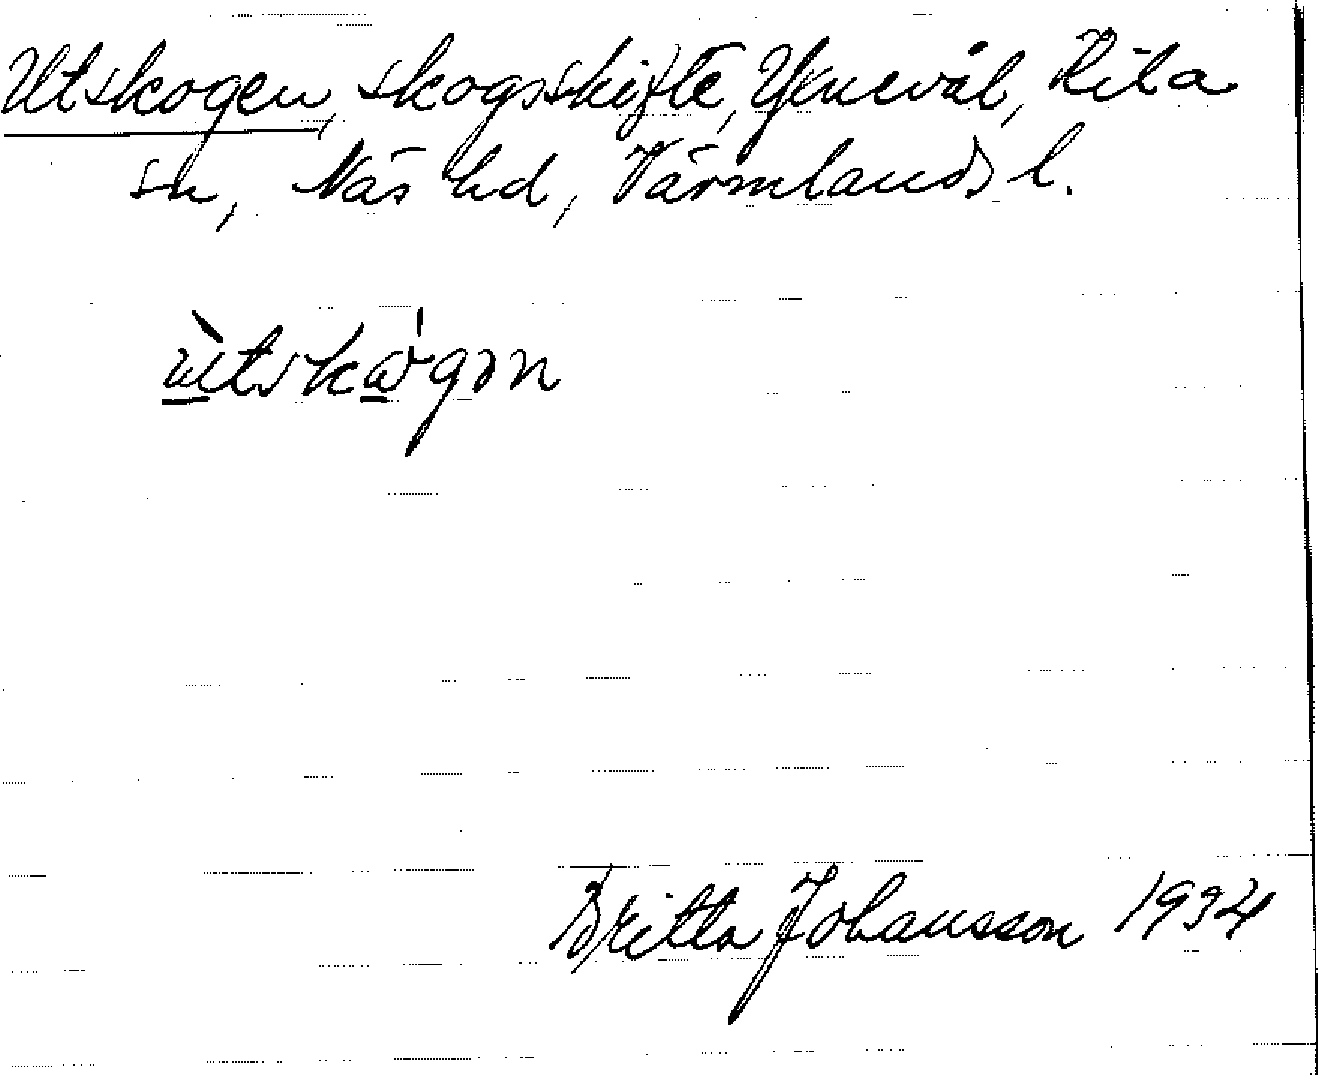 Utskogen, skogsskifte, Ynevål, Kila
sn, Näs hd, Värmlands l.
ùtskɷ̀'gən
Britta Johansson 1934